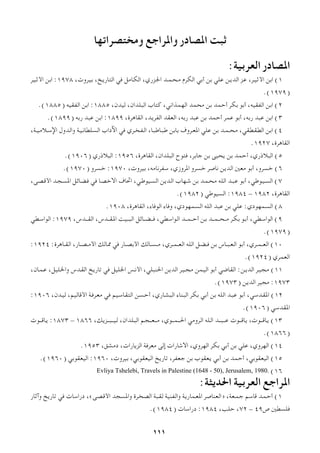 ثبت المصادر والمراجع ومختصراتها
المصادر العربية:
١) ابن الاثير، عز الدين علي بن أبي الكرم محمد الجزري، الكامل في التاريخ، بيروت، ١٩٧٨: ابن الاثير
(١٩٧٩).
٢) ابن الفقيه، أبو بكر أحمد بن محمد الهمذاني، كتاب البلدان، ليدن، ١٨٨٥: ابن الفقيه (١٨٨٥).
٣) ابن عبد ربه، أبو عمر أحمد بن عبد ربه، العقد الفريد، القاهرة، ١٨٩٩: ابن عبد ربه (١٨٩٩).
٤) ابن الطقطقي، محمد بن علي المعروف بابن طباطبا، الفخري في الآداب السلطانية والدول الإسلامية،
القاهرة، ١٩٢٧.
٥) البلاذري، أحمد بن يحيى بن جابر، فتوح البلدان، القاهرة، ١٩٥٦: البلاذري (١٩٠٦).
٦) خسرو، أبو معين الدين ناصر خسرو المروزي، سفرنامه، بيروت، ١٩٧٠: خسرو (١٩٧٠).
٧) السيوطي، أبو عبد الله محمد بن شهاب الدين السيوطي، اتحاف الاخصا في فضائل المسجد الاقصى،
القاهرة، ١٩٨٢ - ١٩٨٤: السيوطي (١٩٨٢).
٨) السمهودي: علي بن عبد الله السمهودي، وفاء الوفاء، القاهرة، ١٩٠٨.
٩) الواسطي، أبو بكر محمد بن احمد الواسطي، فضائل البيت المقدس، القدس، ١٩٧٩: الواسطي
(١٩٧٩).
١٠) العمري، أبو العباس بن فضل الله العمري، مسالك الابصار في ممالك الامصار، القاهرة، ١٩٢٤:
العمري (١٩٢٤).
١١) مجير الدين: القاضي أبو اليمن مجير الدين الحنبلي، الانس الجليل في تاريخ القدس والخليل، عمان،
١٩٧٣: مجير الدين (١٩٧٣).
١٢) المقدسي، أبو عبد الله بن أبي بكر البناء البشاري، أحسن التقاسيم في معرفة الاقاليم، ليدن، ١٩٠٦:
المقدسي (١٩٠٦).
١٣) ياقوت، ياقوت عبد الله الرومي الحموي، معجم البلدان، ليبزيك، ١٨٦٦ - ١٨٧٣: ياقوت
(١٨٦٦).
١٤) الهروي، علي بن أبي بكر الهروي، الاشارات إلى معرفة الزيارات، دمشق، ١٩٥٣.
١٥) اليعقوبي، أحمد بن أبي يعقوب بن جعفر، تاريخ اليعقوبي، بيروت، ١٩٦٠: اليعقوبي (١٩٦٠).
١٦) Evliya Tshelebi, Travels in Palestine (1648 - 50), Jerusalem, 1980.
المراجع العربية الحديثة:
١) أحمد قاسم جمعة، «العناصر المعمارية والفنية لقبة الصخرة والمسجد الاقصى»، دراسات في تاريخ وآثار
فلسطين ص٤٩ - ٧٢، حلب، ١٩٨٤: دراسات (١٩٨٤).
١١١